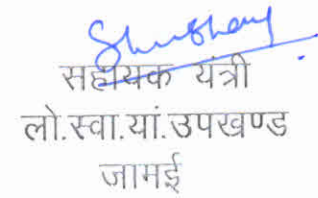 Shubham
सहायक यंत्री
लो.स्वा.यां.उपखण्ड
जामई